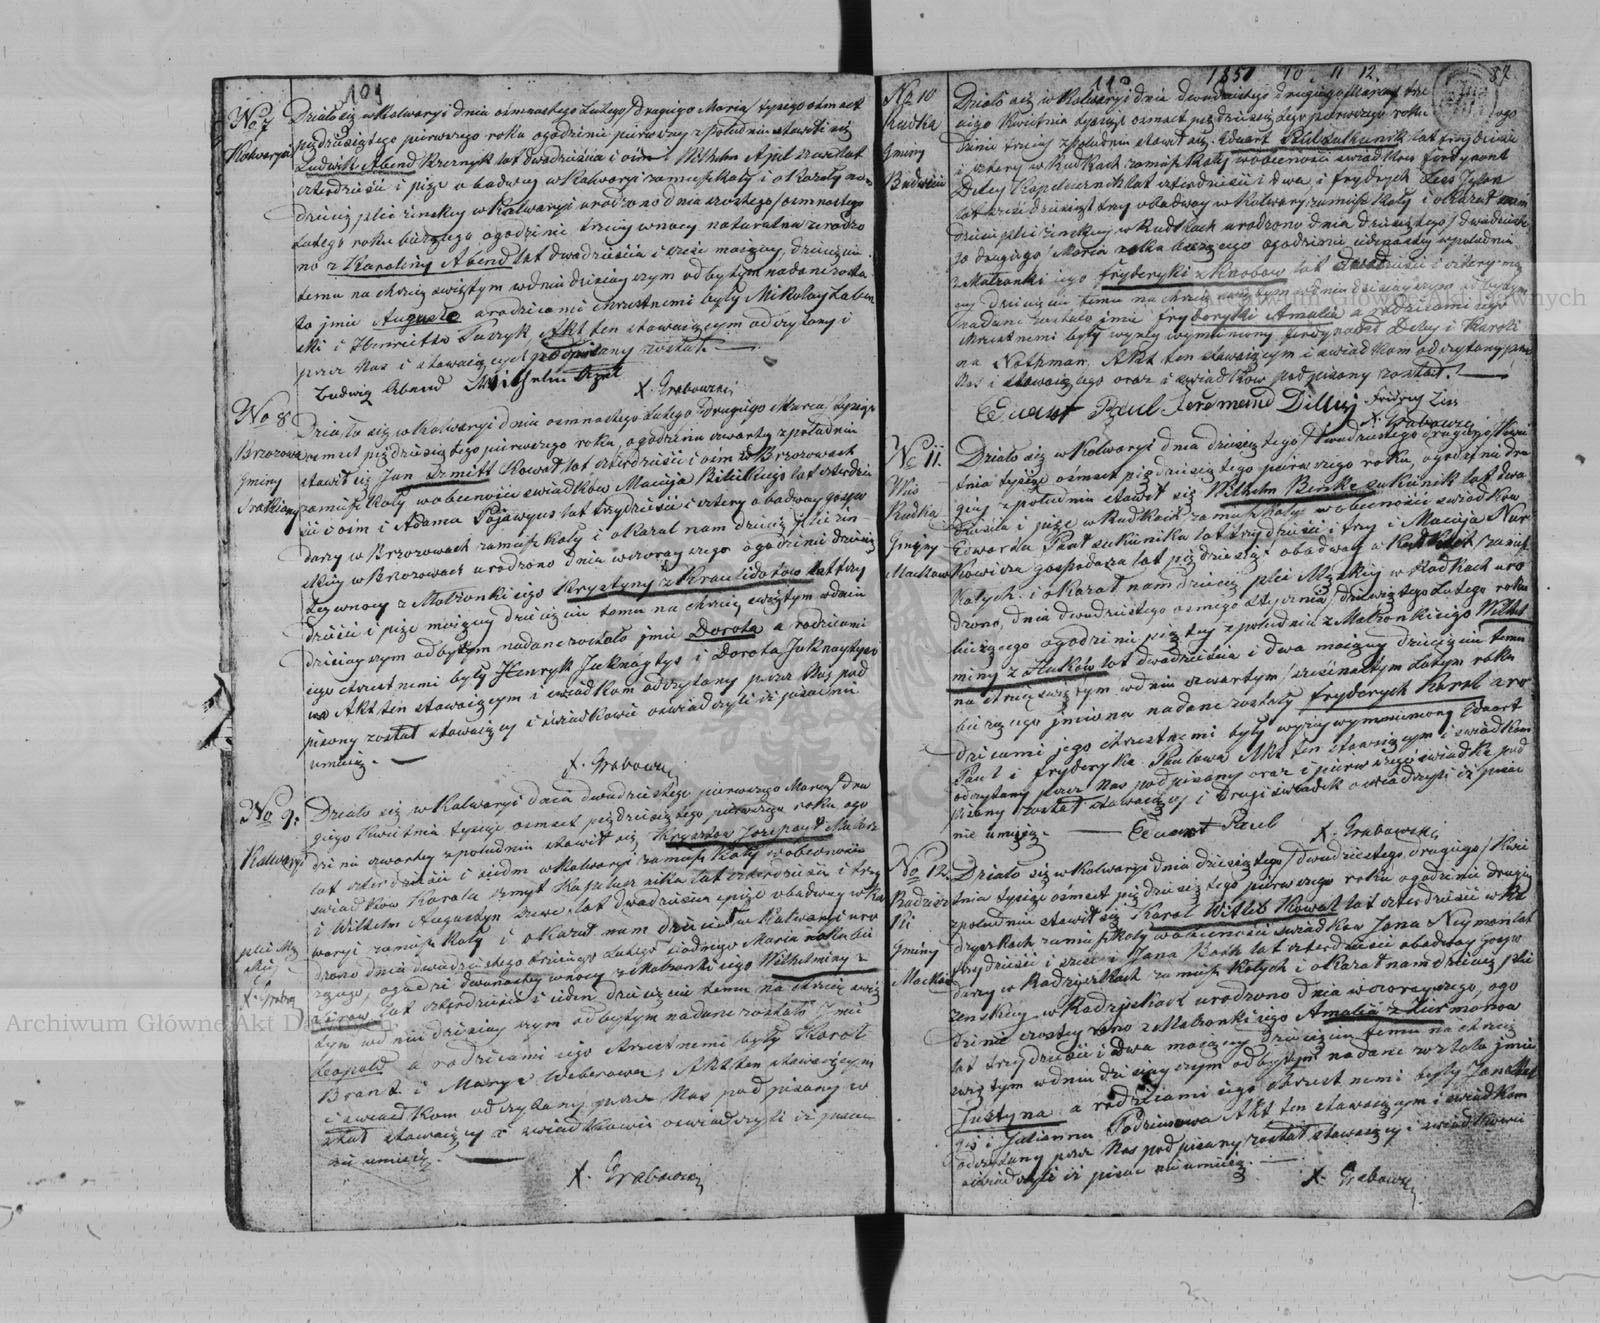 109
No 7
Kalwaryi
Działo się w Kalwaryi dnia ośmnastego Lutego / drugiego Marca / tysiąc ośmset
pięćdziesiątego pierwszego roku o godzinie pierwszej z południa stawili się
Ludwik Abend lat dwadzieścia i ośm i Wilhelm Apel szewc lat
czterdzieści i pięć obadway w Kalwaryi zamieszkały i okazały nam
dziecię płci żeńskiej w Kalwaryi urodzone dnia szóstego / ośmnastego
Lutego roku bieżącego o godzinie trzeciej w nocy naturalna zrodzo
no z Karoliny Abend lat dwadzieścia i sześć mającej, dziecięciu
temu na chrzcie świętym w dniu dzisiayszym odbytym nadane zosta
ło imie Augusta a rodzicami chrzestnemi byli Mikołay
i Henrietta Akt ten stawaiącym odczytany i
przez Nas i stawaiących podpisany został.
Ludwig Abend Wilhelm Apel
X. Grabowski
No 8
Brzozowa
Gminy
Działo się w Kalwaryi dnia ośmnastego Lutego / drugiego Marca / tysiąc
ośmset pięćdziesiątego pierwszego roku, o godzinie czwartej z południa
stawił się Jan Szmitt Kowal lat czterdzieści i ośm w Brzozowach
zamieszkały w obecności świadków Macieja lat czterdzie
ści i ośm i Adama lat trzydzieści i cztery obadway gospo
darzy w Brzozowach zamieszkały i okazał nam dziecię płci żeń
skiej w Brzozowach urodzone dnia wczorayszego o godzinie dziesią
tej w nocy z Małżonki iego Krystyny z lat trzy
dzieści i pięć mającej dziecięciu temu na chrzcie świętym w dniu
dzisiayszym odbytym nadane zostało imie Dorota a rodzicami
iego chrzestnemi byli Henryk i Dorota
Akt ten stawaiącym i świadkom odczytany przez Nas pod
pisany został stawaiący i świadkowie oświadczyli iż pisać nie
umieią.
X. Grabowski
No 9.
Kalwaryi
Działo się w Kalwaryi dnia dwudziestego pierwszego Marca / dru
giego Kwietnia tysiąc ośmset pięćdziesiątego pierwszego roku o go
dzinie czwartej z południa stawił się Krysztof
lat czterdzieści i siedm w Kalwaryi zamieszkały w obecności
świadków Karola Szmyt Kapelusznika lat czterdzieści i trzy
i Wilhelm Augustyn szewc lat dwadzieścia i pięć obadway w Kal
waryi zamieszkały i okazał nam dziecię w Kalwaryi uro
dzone dnia dwudziestego trzeciego Lutego siódmego Marca roku bie
żącego, o godzinie dwunastej w nocy z Małżonki iego Wilhelminy z
lat czterdzieści i ieden dziecięciu temu na chrzcie świę
tym w dniu dzisiayszym odbytym nadane zostało Imie
Leopold a rodzicami iego chrzestnemi byli Karol
Brant i Marya Weberowa; Akt ten stawaiącym
i świadkom odczytany przez Nas podpisany zo
stał stawaiący i świadkowie oświadczyli iż pisać
nie umieią.
płci Mę
skiej
X. Grabow
X. Grabowski
110
1851 10 11 12.
87.
No 10
Rudka
Gminy
Działo się w Kalwaryi dnia dwudziestego drugiego Marca / trze
ciego Kwietnia tysiąc ośmset pięćdziesiątego pierwszego roku o go
dzinie trzeciej z południa stawił się Eduart Paul sukiennik lat trzydzieści
i cztery w Rudkach zamieszkały w obecności świadków Ferdynant
Deley Kapelusznik lat czterdzieści i dwa, i Frydrych Liss
lat sześćdziesiąt trzy obadway w Kalwaryi zamieszkały i okazał nam
dziecię płci żeńskiej w Rudkach urodzone dnia dziesiątego / dwudzieste
go drugiego Marca roku bieżącego o godzinie iedenastej z południa
z Małżonki iego Fryderyki z lat dwadzieścia i cztery ma
iącej dziecięciu temu na chrzcie świętym w dniu dzisiayszym odbytym
nadane zostało imie Fryderyka Amalia a rodzicami iego
chrzestnemi byli wyżey wymieniony Ferdynand Deley i Karoli
na Nothman. Akt ten stawaiącym i świadkom odczytany przez
Nas i stawaiącego oraz i świadków podpisany został.
Eduart Paul Ferdinand Fridrig Liss
X. Grabowski
No 11.
Wieś
Rudka
Gminy
Działo się w Kalwaryi dnia dziesiątego / dwudziestego drugiego / Kwie
tnia tysiąc ośmset pięćdziesiątego pierwszego roku, o godzinie dru
giej z południa stawił się Wilhelm sukiennik lat dwa
dzieścia i pięć w Rudkach zamieszkały w obecności świadków
Edwarda Paul sukiennika lat trzydzieści i trzy i Macieja Nar
kiewicza gospodarza lat pięćdziesiąt obadway w Rudkach zamiesz
kałych i okazał nam dziecię płci Męskiej w Rudkach uro
dzone, dnia dwudziestego ósmego stycznia / dziewiątego Lutego roku
bieżącego o godzinie piątej z południa z Małżonki iego Wilhel
miny z lat dwadzieścia i dwa mającej dziecięciu temu
na chrzcie świętym w dniu czwartym / szesnastym Lutym roku
bieżącego imiona nadane zostały Frydrych Karol a ro
dzicami jego chrzestnemi byli wyżej wymieniony Eduart
Paul i Fryderyka Paulowa Akt ten stawaiącym i świadkom
odczytany przez Nas podpisany oraz i pierwszego świadka pod
pisany został stawaiący i Drugi świadek oświadczyli iż pisać
nie umieią.
Eduart Paul
X. Grabowski
No 12.
Gminy
Działo się w Kalwaryi dnia dziesiątego / dwudziestego drugiego / Kwie
tnia tysiąc ośmset pięćdziesiątego pierwszego roku o godzinie drugiej
z południa stawił się Karol Witlib Kowal lat czterdzieści w Ra
dzyszkach zamieszkały w obecności świadków Jana Neyman lat
trzydzieści i sześć i Jana lat czterdzieści obadway gospo
darzy w Radzyszkach zamieszkałych i okazał nam dziecię płci
żeńskiej w Radzyszkach urodzone dnia wczorayszego, o go
dzinie szóstej rano z Małżonki iego Amalia z
lat trzydzieści i dwa mającej dziecięciu temu na chrzcie
świętym w dniu dzisiayszym odbytym nadane zostało imie
Justyna a rodzicami iego chrzestnemi byli Jan
i Julianna Akt ten stawaiącym i świadkom
odczytany przez Nas podpisany został stawaiący i świadkowie
oświadczyli iż pisać nie umieią.
X. Grabowski
Archiwum Główne Akt Dawnych
Archiwum Główne Akt Dawnych